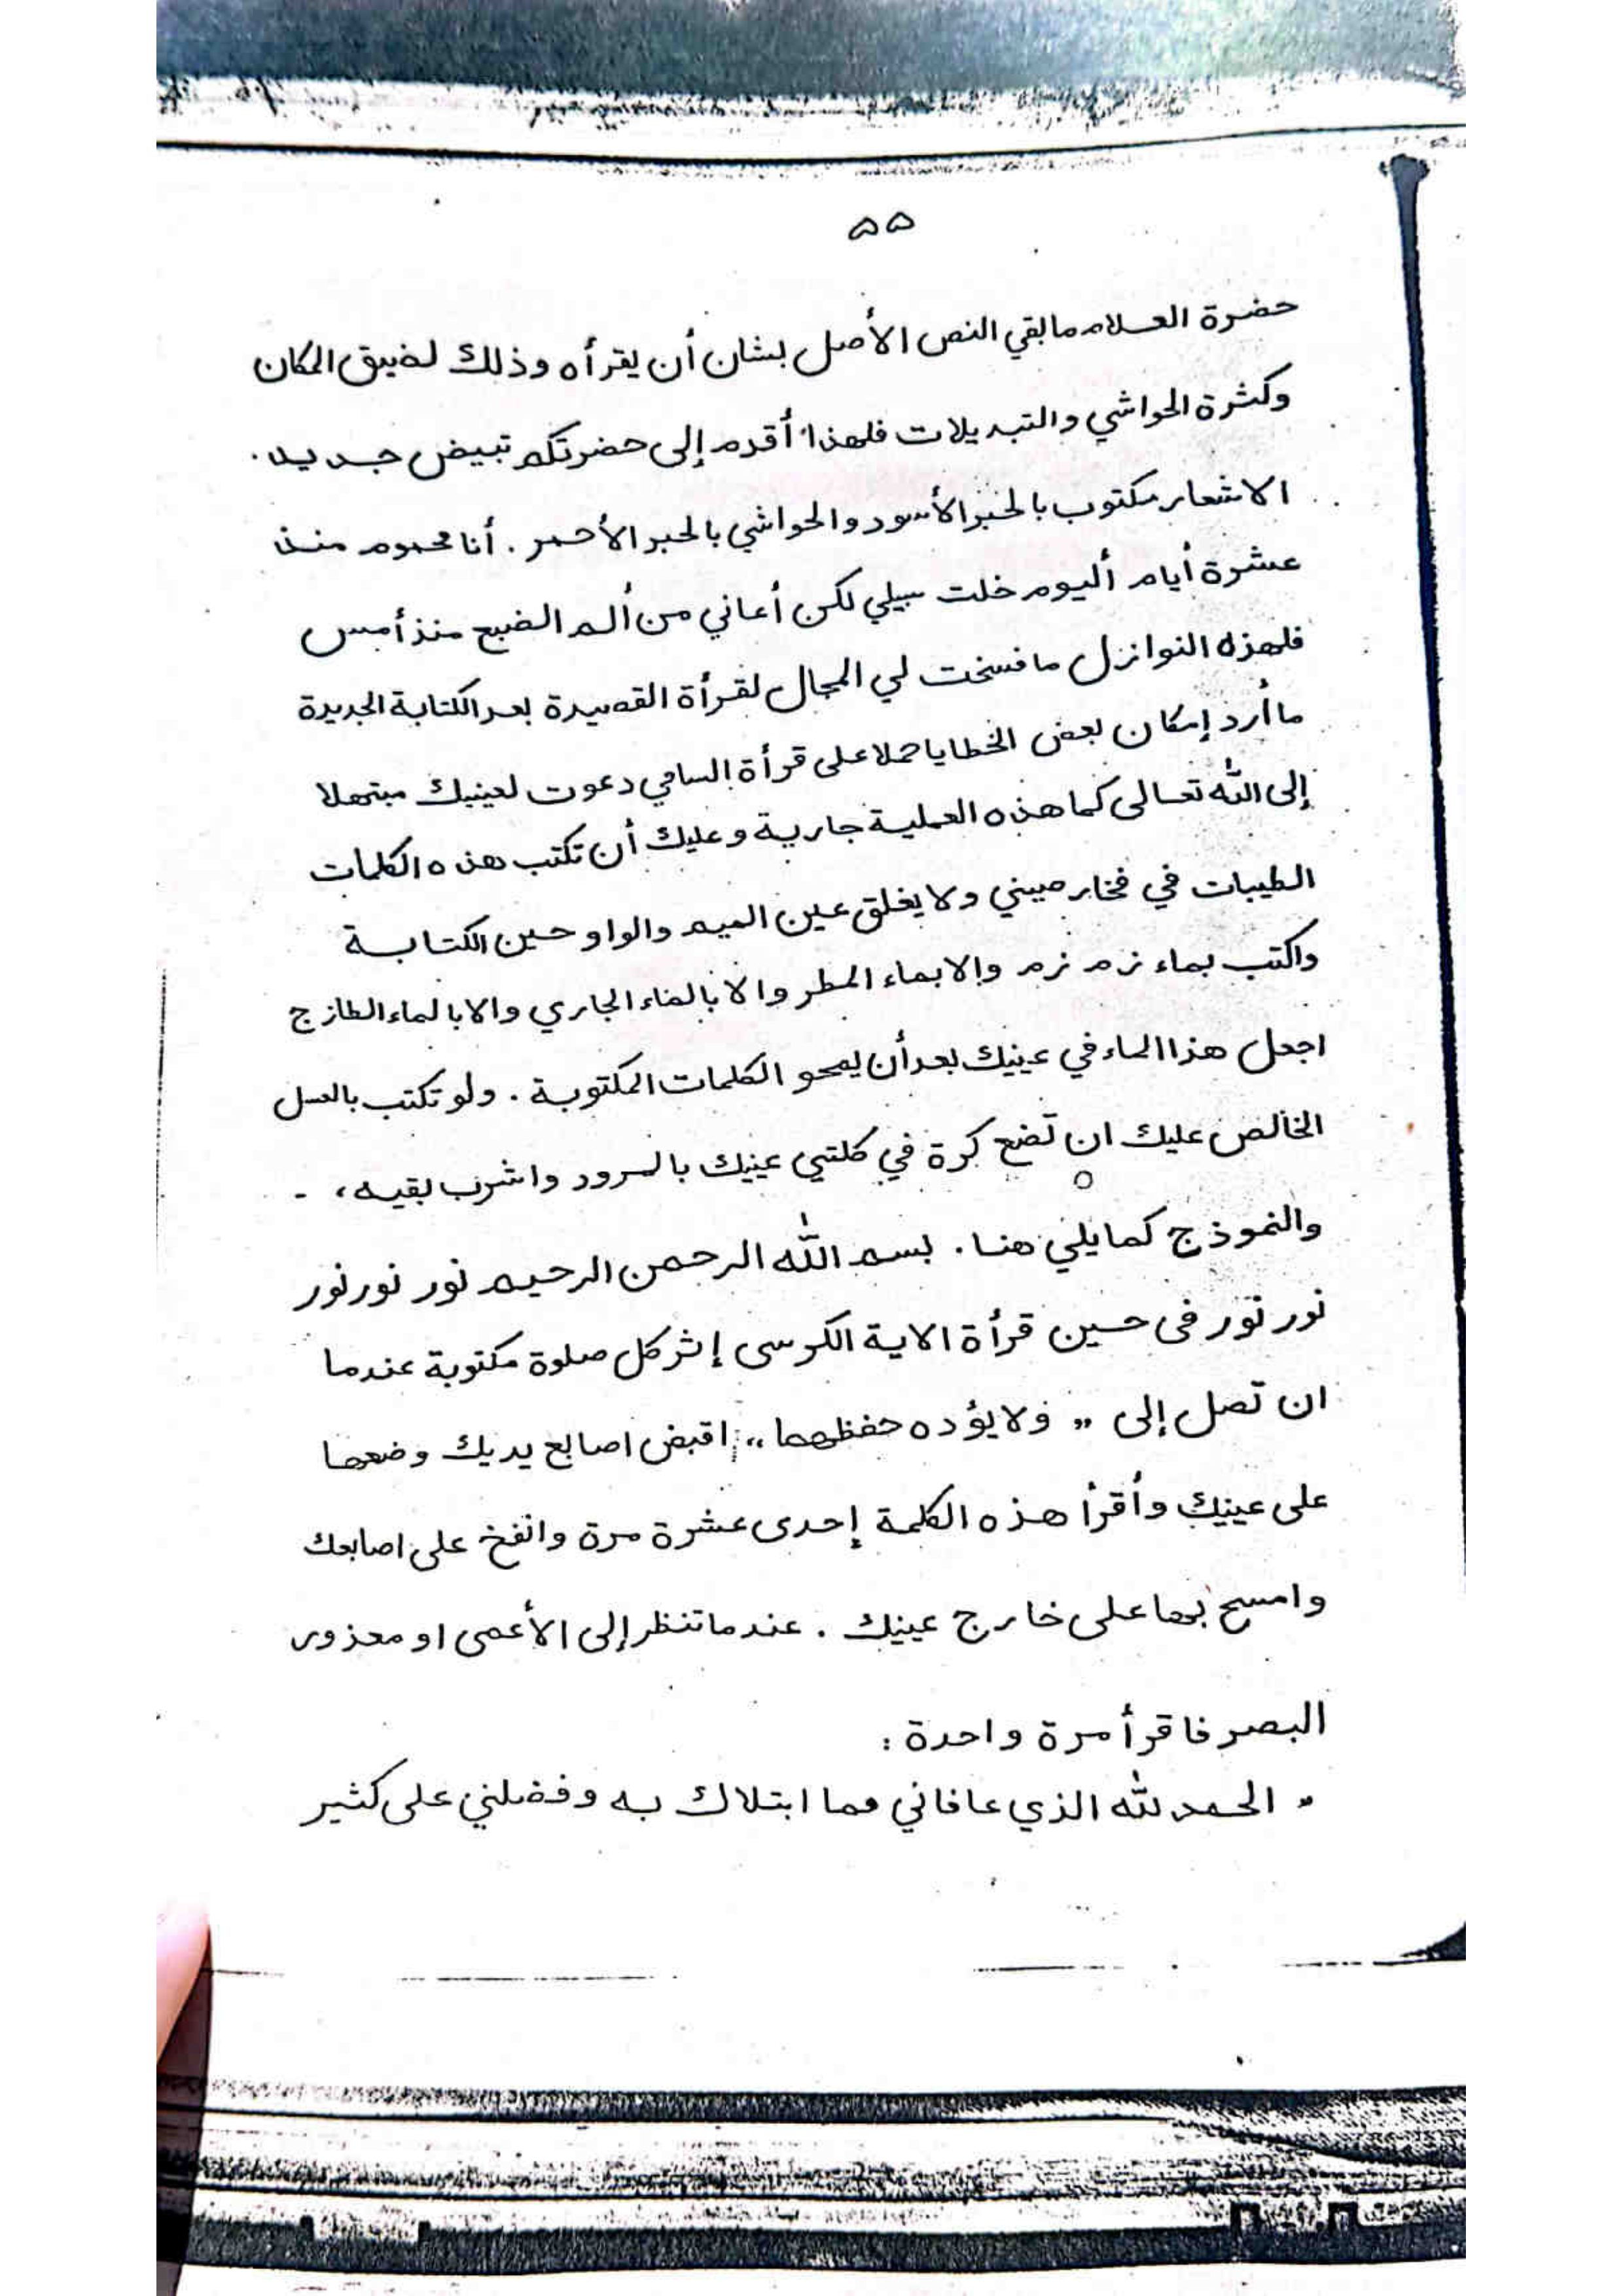 ۵۵
حضرة العلام ما بقي النص الأصل بشان أن يقرأه وذلك لضيق المكان
وكثرة الحواشي والتبديلات فلهذا أقدم إلى حضرتكم تبيض جديد.
الاشعار مكتوب بالحبر الأسود والحواشي بالحبر الأحمر. أنا محموم منذ
عشرة أيام أليوم خلت سبيلي لكن أعاني من ألم الضبع منذ أمس
فلهزه النوازل ما فسخت لي المجال لقرأة القصيدة بعد الكتابة الجديدة
ما أرد إمكان بعض الخطايا حملا على قرأة السامي دعوت لعينيك مبتهلا
إلى الله تعالى كما هذه العملية جارية وعليك أن تكتب هذه الكلمات
الطيبات في فخار صيني ولا يغلق عين الميم والواو حين الكتابة
واكتب بماء زم زم وإلا بماء المطر والا بالماء الجاري والا بالماء الطازج
اجعل هذا الماء في عينيك بعد أن يمحو الكلمات المكتوبة. ولو تكتب بالعسل
الخالص عليك ان تضع كرة في كلتي عينيك بالمرود واشرب بقيه، -
والنموذج كما يلي هنا. بسم الله الرحمن الرحيم نور نور نور
نور نور فى حين قرأة الاية الكرسى إثر كل صلوة مكتوبة عندما
ان تصل إلى „ ولا يؤده حفظهما „ اقبض اصابع يديك وضعها
على عينيك وأقرأ هذه الكلمة إحدى عشرة مرة وانفخ على اصابعك
وامسح بها على خارج عينيك. عندما تنظر إلى الأعمى او معذور
البصر فاقرأ مرة واحدة:
" الحمد لله الذي عافاني مما ابتلاك به وفضلني على كثير